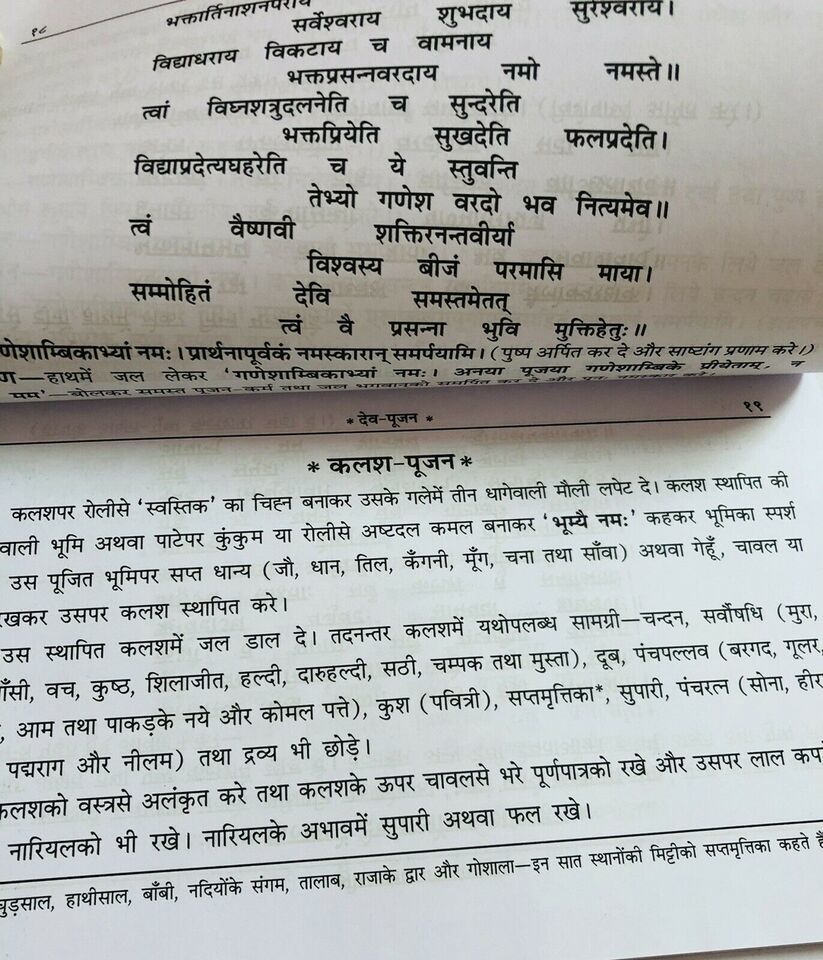 १८
भक्तार्तिनाशनपराय
सर्वेश्वराय शुभदाय सुरेश्वराय।
विद्याधराय विकटाय च वामनाय
भक्तप्रसन्नवरदाय नमो नमस्ते॥
त्वां विघ्नशत्रुदलनेति च सुन्दरेति
भक्तप्रियेति सुखदेति फलप्रदेति।
विद्याप्रदेत्यघहरेति च ये स्तुवन्ति
तेभ्यो गणेश वरदो भव नित्यमेव॥
त्वं वैष्णवी शक्तिरनन्तवीर्या
विश्वस्य बीजं परमासि माया।
सम्मोहितं देवि समस्तमेतत्
त्वं वै प्रसन्ना भुवि मुक्तिहेतुः॥
णेशाम्बिकाभ्यां नमः। प्रार्थनापूर्वकं नमस्कारान् समर्पयामि। (पुष्प अर्पित कर दे और साष्टांग प्रणाम करे।)
ण—हाथमें जल लेकर 'गणेशाम्बिकाभ्यां नमः। अनया पूजया गणेशाम्बिके प्रीयेताम्, न
मम'—बोलकर समस्त पूजन-कर्म तथा जल भगवान्को समर्पित कर दे और पुनः नमस्कार करे।
* देव-पूजन * १९
* कलश-पूजन *
कलशपर रोलीसे 'स्वस्तिक' का चिह्न बनाकर उसके गलेमें तीन धागेवाली मौली लपेट दे। कलश स्थापित की
वाली भूमि अथवा पाटेपर कुंकुम या रोलीसे अष्टदल कमल बनाकर 'भूम्यै नमः' कहकर भूमिका स्पर्श
उस पूजित भूमिपर सप्त धान्य (जौ, धान, तिल, कँगनी, मूँग, चना तथा साँवा) अथवा गेहूँ, चावल या
रखकर उसपर कलश स्थापित करे।
उस स्थापित कलशमें जल डाल दे। तदनन्तर कलशमें यथोपलब्ध सामग्री—चन्दन, सर्वौषधि (मुरा,
ाँसी, वच, कुष्ठ, शिलाजीत, हल्दी, दारुहल्दी, सठी, चम्पक तथा मुस्ता), दूब, पंचपल्लव (बरगद, गूलर,
, आम तथा पाकड़के नये और कोमल पत्ते), कुश (पवित्री), सप्तमृत्तिका*, सुपारी, पंचरत्न (सोना, हीर
पद्मराग और नीलम) तथा द्रव्य भी छोड़े।
कलशको वस्त्रसे अलंकृत करे तथा कलशके ऊपर चावलसे भरे पूर्णपात्रको रखे और उसपर लाल कप
नारियलको भी रखे। नारियलके अभावमें सुपारी अथवा फल रखे।
घुड़साल, हाथीसाल, बाँबी, नदियोंके संगम, तालाब, राजाके द्वार और गोशाला—इन सात स्थानोंकी मिट्टीको सप्तमृत्तिका कहते हैं